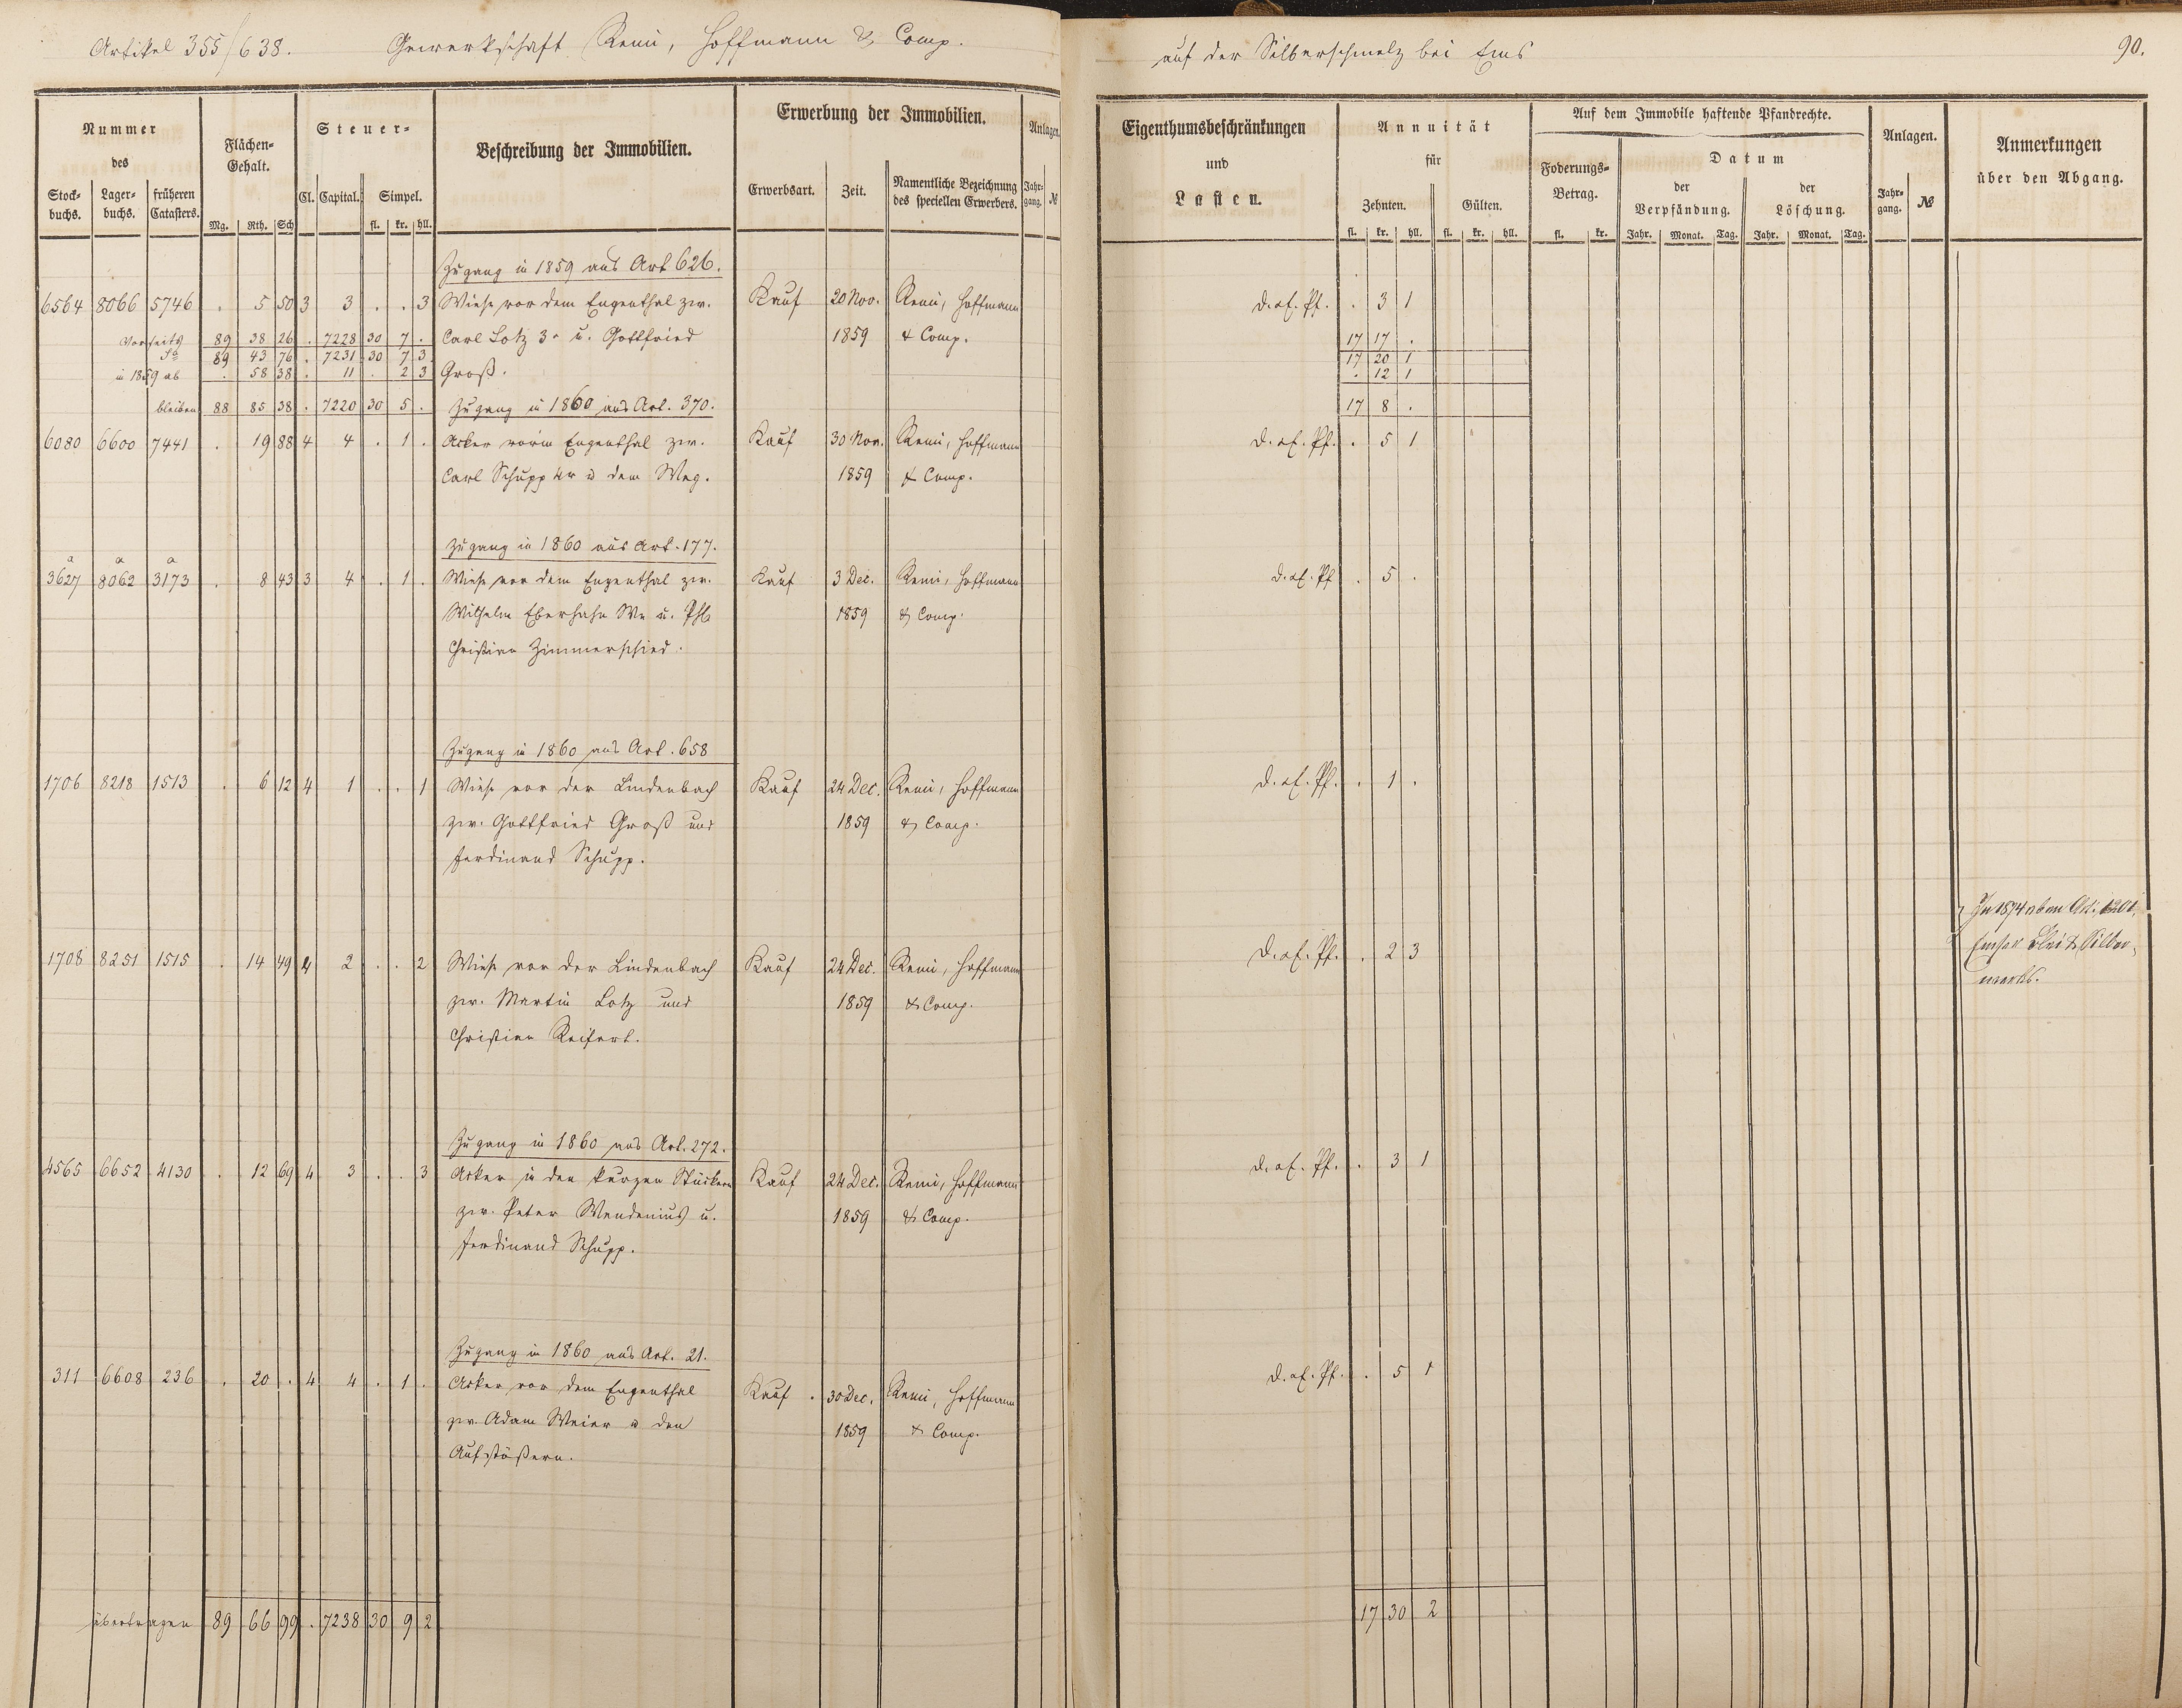 Artikel 355/638. Gewerkschaft Remi, Hoffmann & Comp. auf der Silberschmelz bei Ems 90.
Nummer des
Stock-buchs. Lager-buchs. früheren Catasters.
Flächen-Gehalt.
Mg. Rth. Sch
Steuer-
Cl. Capital. Simpel.
fl. kr. hll.
Beschreibung der Immobilien.
Erwerbung der Immobilien.
Erwerbsart. Zeit. Namentliche Bezeichnung des speciellen Erwerbers.
Anlagen.
Jahr-gang. №
Eigenthumsbeschränkungen und Lasten.
Annuität für
Zehnten. Gülten.
fl. kr. hll. fl. kr. hll.
Auf dem Immobile haftende Pfandrechte.
Foderungs-Betrag.
fl. kr.
Datum
der Verpfändung. der Löschung.
Jahr. Monat. Tag. Jahr. Monat. Tag.
Anlagen.
Jahr-gang. №
Anmerkungen über den Abgang.
Zugang in 1859 aus Art 626.
6564 8066 5746 . 5 50 3 3 . . 3 Wiese vor dem Engenthal zw. Kauf 20 Nov. Remi, Hoffmann D. ol. Pf. . 3 1
Vorseits 89 38 26 . 7228 30 7 . Carl Lotz 3r u. Gottfried 1859 & Comp. 17 17 .
Sa 89 43 76 . 7231 30 7 3 17 20 1
in 1859 ab . 58 38 . 11 . 2 3 Groß. . 12 1
bleiben 88 85 38 . 7220 30 5 . Zugang in 1860 aus Art. 370. 17 8 .
6080 6600 7441 . 19 88 4 4 . 1 . Acker vorm Engenthal zw. Kauf 30 Nov. Remi, Hoffmann D. ol. Pf. . 5 1
Carl Schupp 4r u dem Weg. 1859 & Comp.
Zugang in 1860 aus Art. 177.
a a a
3627 8062 3173 . 8 43 3 4 . 1 . Wiese vor dem Engenthal zw. Kauf 3 Dec. Remi, Hoffmann D. ol. Pf . 5 .
Wilhelm Eberhahn We u. Phl. 1859 & Comp.
Christian Zimmerschied.
Zugang in 1860 aus Art. 658
1706 8218 1513 . 6 12 4 1 . . 1 Wiese vor der Lindenbach Kauf 24 Dec. Remi, Hoffmann D. ol. Pf. . 1 .
zw. Gottfried Groß und 1859 & Comp.
Ferdinand Schupp.
In 1874 ab in Art. 1201,
Emser Blei & Silber-
werks.
1708 8251 1515 . 14 49 4 2 . . 2 Wiese vor der Lindenbach Kauf 24 Dec. Remi, Hoffmann D. ol. Pf. . 2 3
zw. Martin Lotz und 1859 & Comp.
Christian Reifert.
Zugang in 1860 aus Art. 272.
4565 6652 4130 . 12 69 4 3 . . 3 Acker in den kurzen Stücken Kauf 24 Dec. Remi, Hoffmann D. ol. Pf. . 3 1
zw. Peter Wendenius u. 1859 & Comp.
Ferdinand Schupp.
Zugang in 1860 aus Art. 21.
311 6608 236 . 20 . 4 4 . 1 . Acker vor dem Engenthal Kauf . 30 Dec. Remi, Hoffmann D. ol. Pf. . 5 1
zw. Adam Meier u den 1859 & Comp.
Aufstößern.
übertragen 89 66 99 . 7238 30 9 2 17 30 2